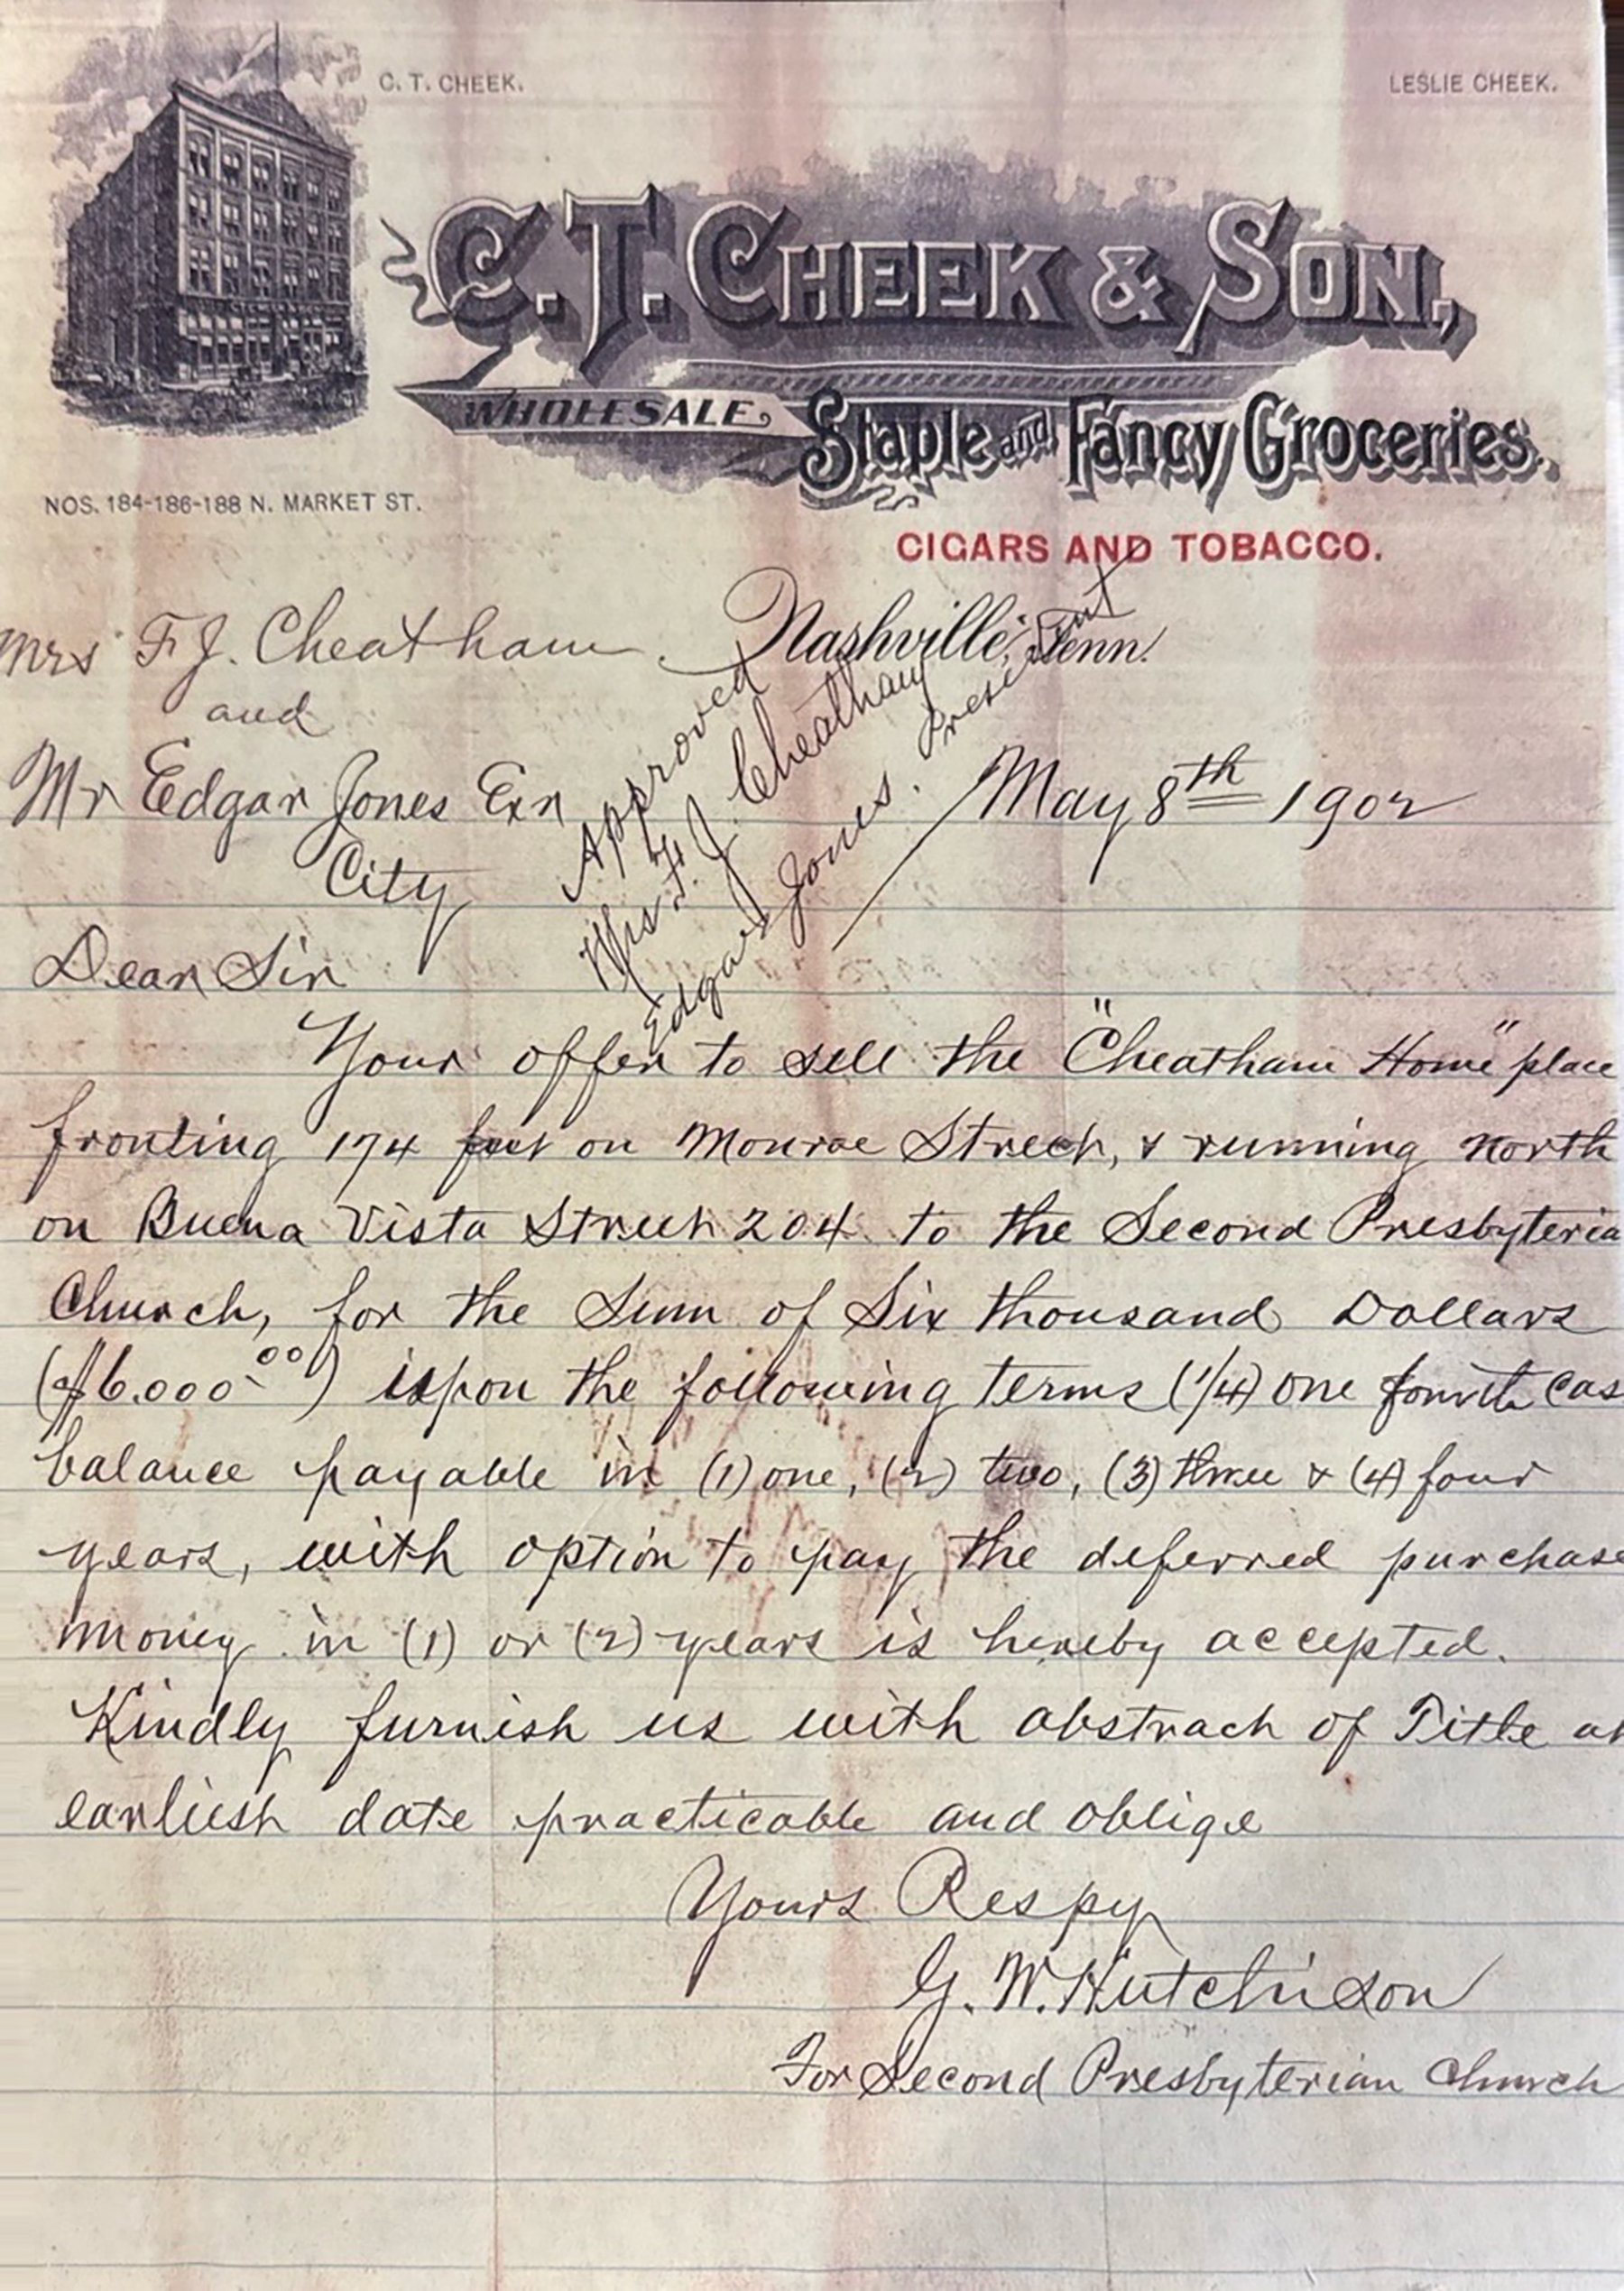 C. T. CHEEK.
LESLIE CHEEK.
C. T. CHEEK & SON,
WHOLESALE
Staple and Fancy Groceries.
NOS. 184-186-188 N. MARKET ST.
CIGARS AND TOBACCO.
Nashville, Tenn.
May 8th 1902
Mrs F. J. Cheatham
and
Mr Edgar Jones Exr
City
Approved
Mrs F. J. Cheatham
Edgar Jones. President
Dear Sir
Your offer to sell the "Cheatham Home" place
fronting 174 feet on Monroe Street, & running North
on Buena Vista Street 204 to the Second Presbyteria
Church, for the Sum of Six thousand Dollars
($6.000.00) upon the following terms (1/4) one fourth cas
balance payable in (1) one, (2) two, (3) three & (4) four
years, with option to pay the deferred purchase
money in (1) or (2) years is hereby accepted.
Kindly furnish us with abstract of Title at
earliest date practicable and oblige
Yours Respy
G. W. Hutchison
For Second Presbyterian Church